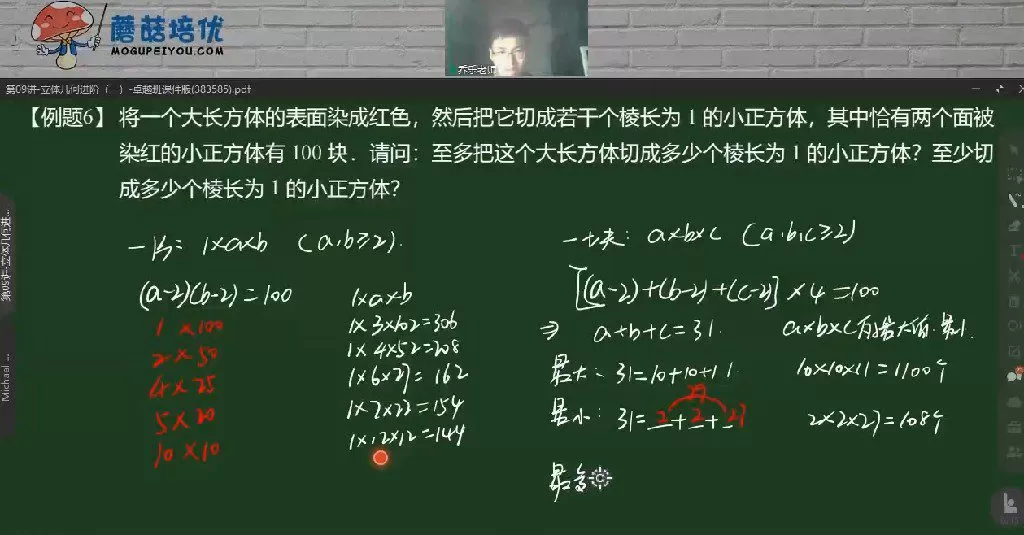 蘑菇培优
MOGUPEIYOU.COM
乔乐老师
第09讲-立体几何进阶（...）-卓越班课件版(383585).pdf
【例题6】将一个大长方体的表面染成红色，然后把它切成若干个棱长为 1 的小正方体，其中恰有两个面被
染红的小正方体有 100 块．请问：至多把这个大长方体切成多少个棱长为 1 的小正方体？至少切
成多少个棱长为 1 的小正方体？
一阶: 1×a×b (a,b≥2).
(a-2)(b-2)=100
1 × 100
2 × 50
4 × 25
5 × 20
10 × 10
1×a×b
1×3×102=306
1×4×52=208
1×6×27=162
1×7×22=154
1×12×12=144
a×b×c (a,b,c≥2)
[(a-2)+(b-2)+(c-2)]×4=100
⇒ a+b+c=31. a×b×c有最大值.最小.
最大: 31=10+10+11 10×10×11=1100个
29
最小: 31=2+2+27 2×2×27=108个
最多
第09讲-立体几何进...
Michael ...